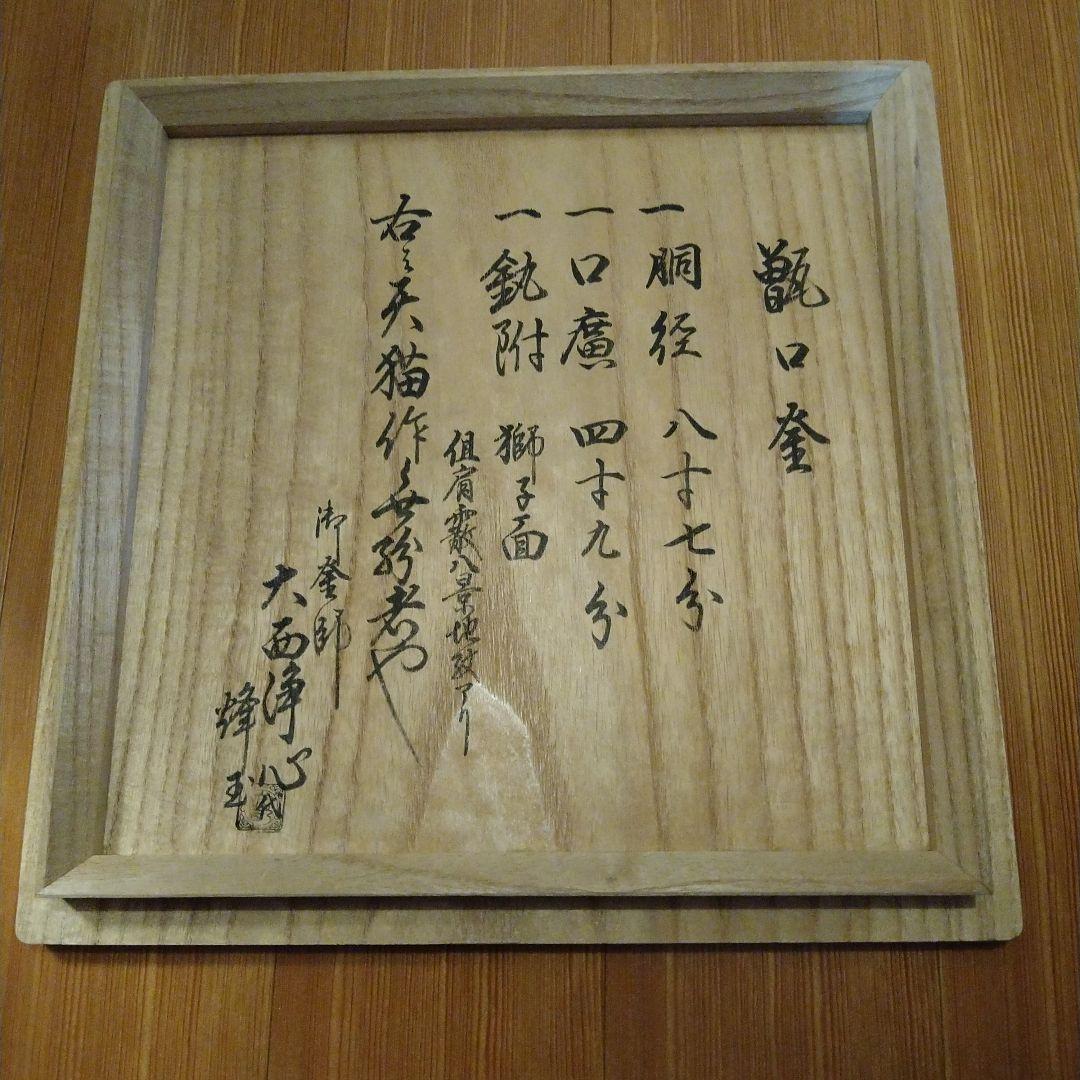 甑口釜
一 胴径 八寸七分
一 口廣 四寸九分
一 釻附 獅子面
但肩霰八景地紋アリ
右之天猫作ニ無紛者也
御釜師
大西浄心
八代